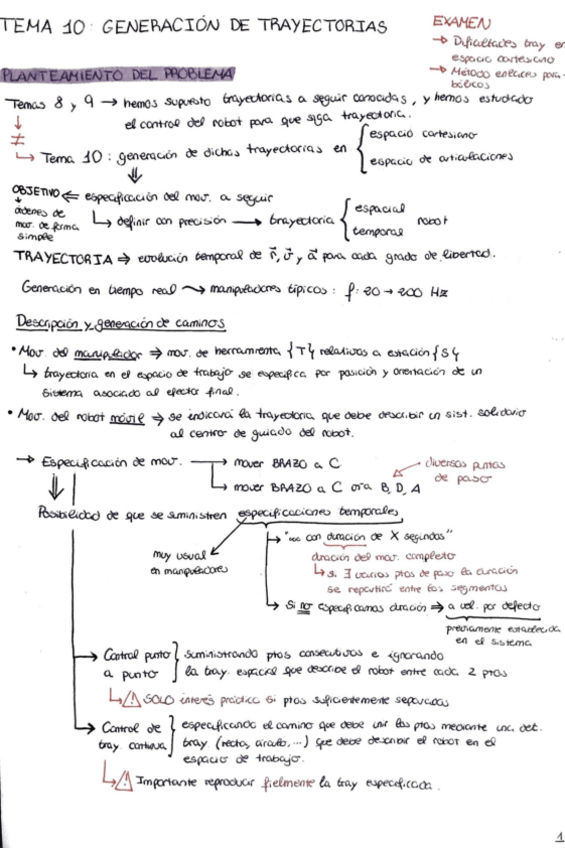 TEMA 10: GENERACIÓN DE TRAYECTORIAS
EXAMEN
→ Dificultades tray en
espacio cartesiano
→ Método enlaces para-
bólicos
PLANTEAMIENTO DEL PROBLEMA
Temas 8 y 9 → hemos supuesto trayectorias a seguir conocidas, y hemos estudiado
el control del robot para que siga trayectoria.
≠
Tema 10: generación de dichas trayectorias en { espacio cartesiano
espacio de articulaciones
OBJETIVO ⇐ especificación del mov. a seguir
órdenes de
mov. de forma
simple
definir con precisión → trayectoria { espacial
temporal
robot
TRAYECTORIA ⇒ evolución temporal de r⃗, v⃗ y a⃗ para cada grado de libertad.
Generación en tiempo real → manipuladores típicos: f: 20 → 200 Hz
Descripción y generación de caminos
• Mov. del manipulador ⇒ mov. de herramienta {T} relativos a estación {S}
↳ trayectoria en el espacio de trabajo se especifica por posición y orientación de un
sistema asociado al efector final.
• Mov. del robot móvil ⇒ se indicará la trayectoria que debe describir un sist. solidario
al centro de guiado del robot.
→ Especificación de mov. → mover BRAZO a C
→ mover BRAZO a C vía B, D, A
diversos puntos
de paso
Posibilidad de que se suministren especificaciones temporales
muy usual
en manipuladores
"... con duración de X segundos"
duración del mov. completo
↳ si ∃ varios ptos de paso la duración
se repartirá entre los segmentos
→ Si no especificamos duración ⇒ a vel. por defecto
previamente establecida
en el sistema
→ Control punto
a punto
} suministrando ptos consecutivos e ignorando
la tray. espacial que describe el robot entre cada 2 ptos
↳ ⚠ SOLO interés práctico si ptos suficientemente separados
→ Control de
tray. continua
} especificando el camino que debe unir los ptos mediante una det.
tray (recta, círculo, ...) que debe describir el robot en el
espacio de trabajo.
↳ ⚠ Importante reproducir fielmente la tray especificada.
1